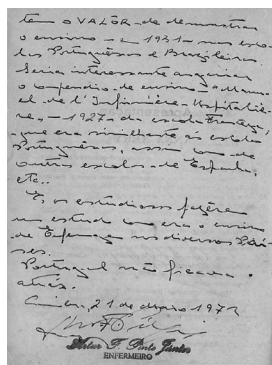 tem o VALÔR de demonstrar
o ensino - em 1921 - nas esco-
las Portuguêsas e Brazileiras.
Seria interessante arquivar
o compendio de ensino - "Manuel
de l'Infirmière - Hospitaliè-
re, - 1927 - da escola Francêsa,
que era similhante às escolas
Portuguêsas, assim como de
outras escolas de Espanha,
etc..
E os estudiosos fazêrem
um estudo como era o ensino
de Enfermagem nos diversos Paí-
ses.
Portugal não ficava
atraz.
21 de março 197
Artur F. Pinto Júnior
ENFERMEIRO